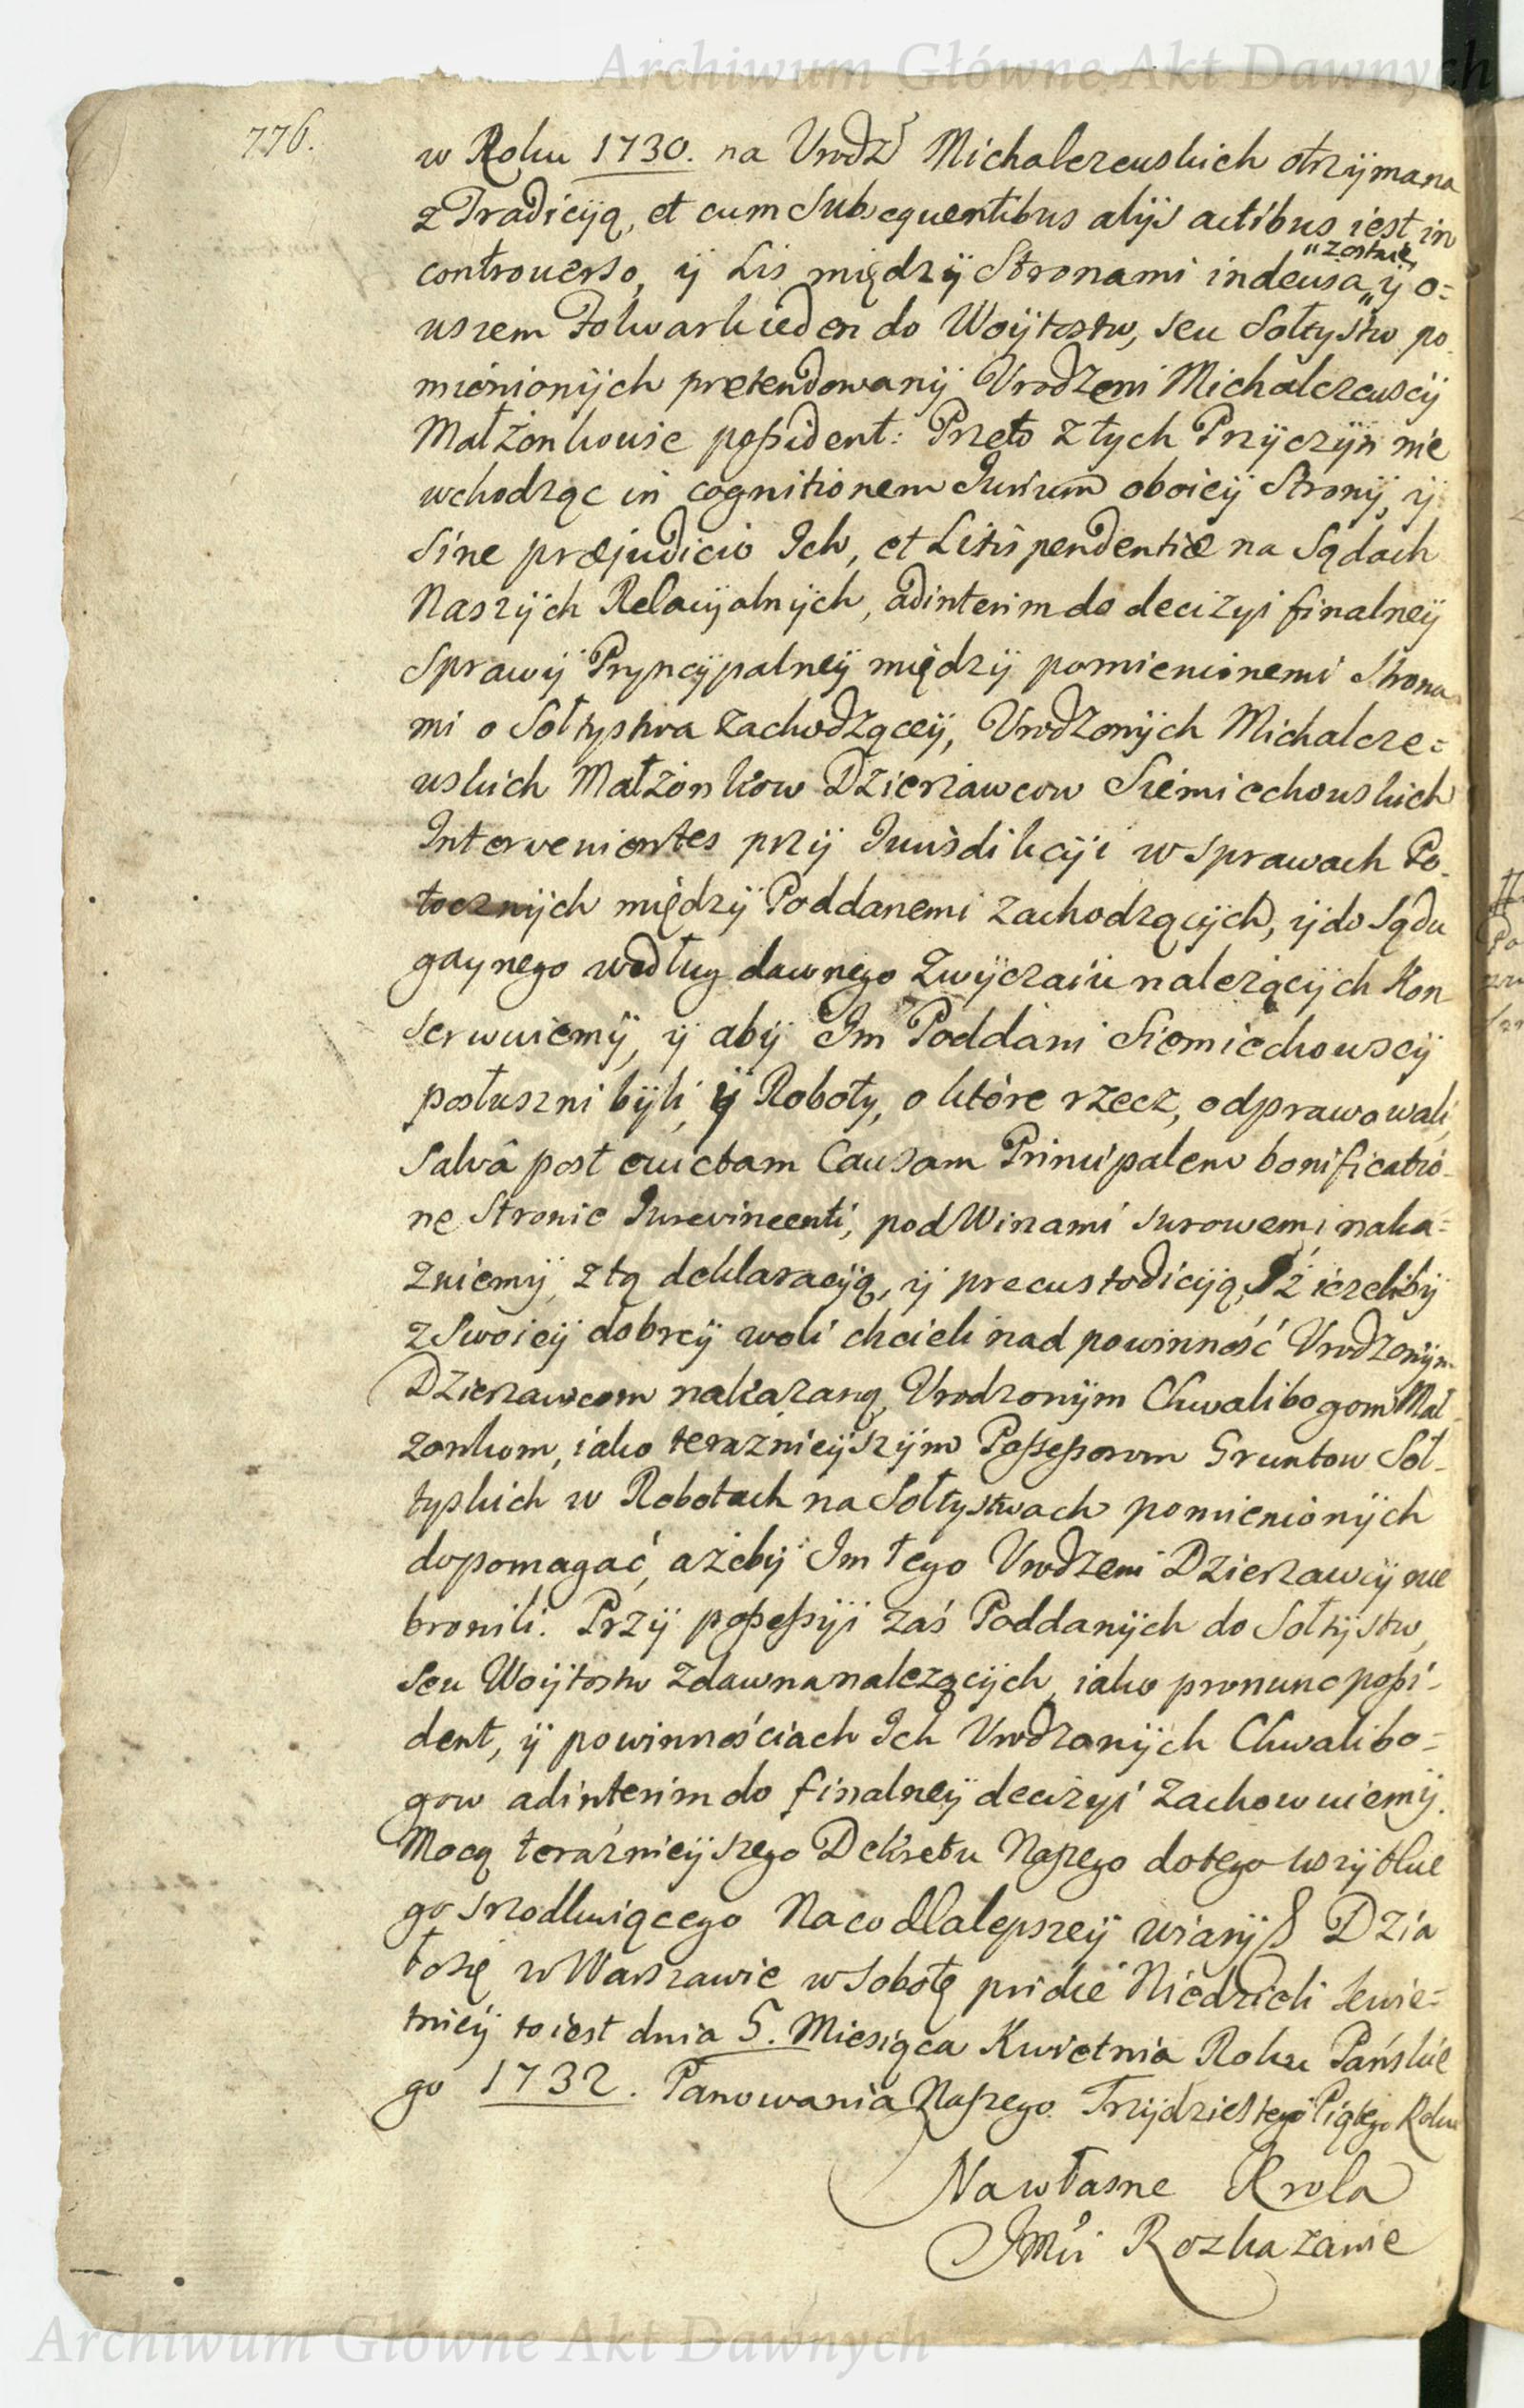 Archiwum Główne Akt Dawnych
776.
w Roku 1730. na Urodz Michalczewskich otrzÿmana
z Tradicÿą, et cum Subsequentibus alijs actibus iest in
controuerso, ÿ Lis międzÿ Stronami indecisa „zostaie„ ÿ o=
wszem Folwark ieden do Woÿtostw, seu Sołtystw po
mienionÿch pretendowanÿ Urodzeni Michalczewscÿ
Małżonkowie possident: Przeto z tych Przÿczÿn nie
wchodząc in cognitionem Iurium oboieÿ Stronÿ, ÿ
Sine præjudicio Ich, et Litis pendentiæ na Sądach
Naszÿch Relacÿalnÿch, adinterim do decizyi finalneÿ
Sprawÿ Pryncÿpalneÿ międzÿ pomienionemi Strona
mi o Sołtystwa zachodząceÿ, Urodzonÿch Michalcze=
wskich Małżonkow Dzierzawcow Siemiechowskich
Intervenientes przÿ Iurisdikcÿi w sprawach Po
tocznÿch międzÿ Poddanemi zachodzącÿch, ÿ do Sądu
gaynego według dawnego zwÿczaiu należącÿch Kon
serwuiemÿ, ÿ abÿ Im Poddani Siemiechowscÿ
posłuszni bÿli, ÿ Roboty, o które rzecz, odprawowali,
Salvâ post evictam Causam Principalem bonificatio
ne Stronie Iurevincenti, pod Winami surowemi naka=
zuiemÿ, z tą deklaracÿą, ÿ precustodicÿą, Iż ieżelibÿ
z Swoieÿ dobreÿ woli chcieli nad powinność Urodzonÿm
Dzierzawcom nakazaną, Urodzonÿm Chwalibogom Mał
zonkom, iako teraznieÿszÿm Possessorom Gruntow Soł
tyskich w Robotach na Sołtystwach pomienionÿch
dopomagać, ażebÿ Im tego Urodzeni Dzierzawcÿ nie
bronili. Przÿ possessÿi zaś Poddanÿch do Sołtÿstw,
seu Woÿtostw zdawna należącÿch, iako pronunc possi
dent, ÿ powinnościach Ich Urodzonÿch Chwalibo=
gow adinterim do finalneÿ decizyi zachowuiemÿ.
Mocą teraźnieÿszego Dekretu Naszego do tego wszÿtkie
go srzodkuiącego Na co dla lepszeÿ wiarÿ § Dzia
ło się w Warszawie w Sobotę pridie Niedzieli kwie=
tnieÿ to iest dnia 5. Miesiąca Kwietnia Roku Pańskie
go 1732. Panowania Naszego Trzÿdziestego Piątego Roku
Na własne Krola
JMći Rozkazanie
Archiwum Główne Akt Dawnych